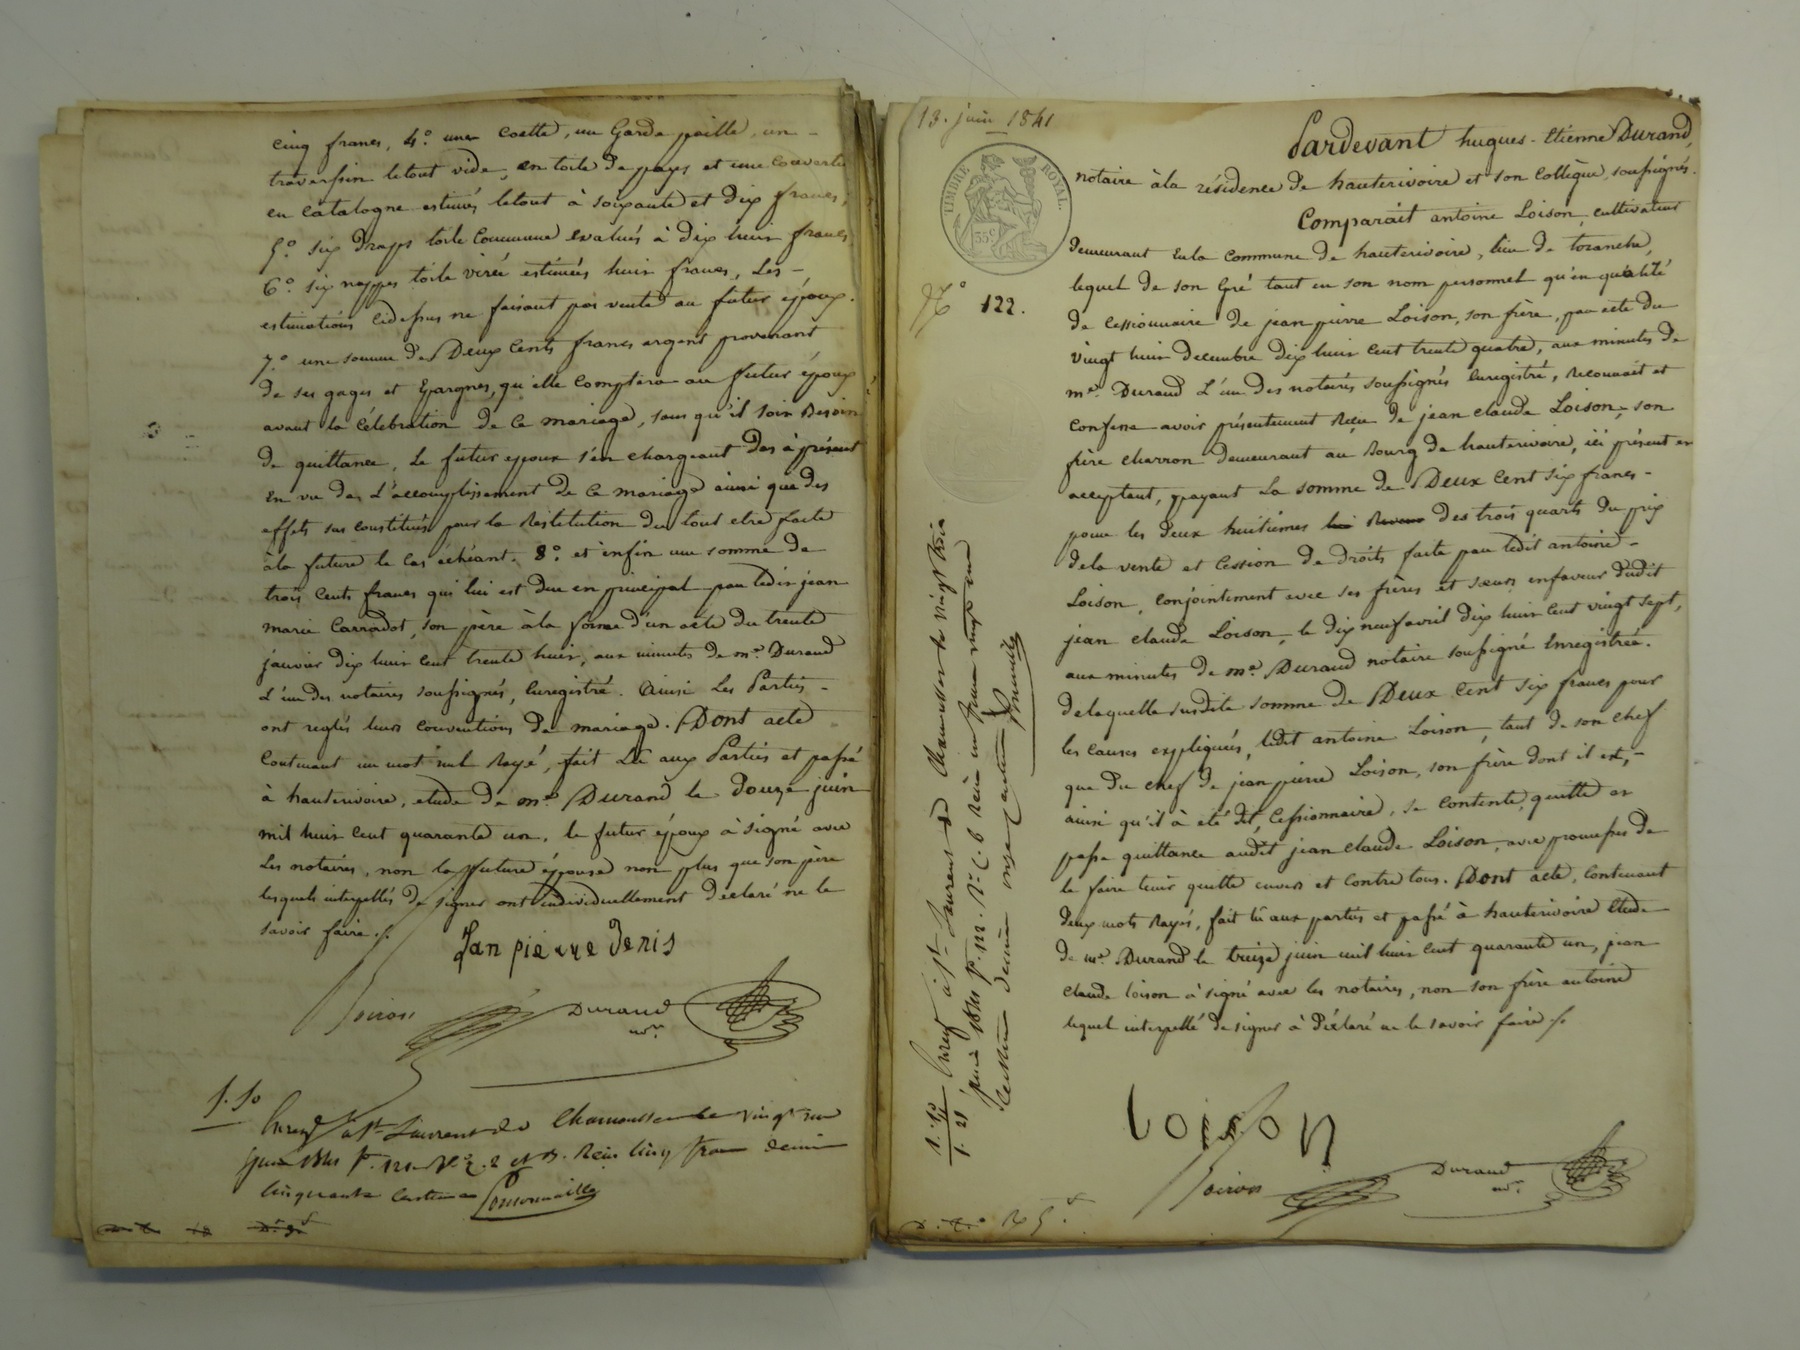 cinq francs, 4.° une coette, un Garde paille, un -
traversin letout vide, en toile de pays et une couverte
en catalogne estimés letout à soixante et dix francs,
5.° six draps toile commune evalués à dix huit francs
6.° six nappes toile virée estimées huit francs, Les -
estimations cidessus ne faisant pas vente au futur époux.
7.° une somme de Deux cents francs argent provenant
de ses gages et Epargnes, qu'elle comptera au futur époux
avant la célébration de ce mariage, sans qu'il soit Besoin
de quittance, le futur epoux s'en chargeant des à présent
en vu de L'accomplissement de ce mariage ainsi que des
effets sus constitués pour la Restitution du tout etre faite
àla future le cas échéant. 8.° et enfin une somme de
trois cents francs qui lui est due en principal par ledit jean
marie Carradot, son père àla forme d'un acte du trente
janvier dix huit cent trente huit, aux minutes de me. Durand
L'un des notaires soussignés, Enregistré. Ainsi Les Parties -
ont reglés leurs conventions de mariage. Dont acte
contenant un mot nul Rayé, fait Lû aux Parties et passé
à hauterivoire, etude de me. Durand le Douze juin
mil huit cent quarante un. le futur époux à signé avec
Les notaires, non la future épouse non plus que son père
lesquels interpellés de signer ont individuellement declaré ne le
savoir faire ./.
Jan pierre Denis
Durand
nore.
Enregé. à St. Laurent de Chamousset le vingt un
juin 1841 f°. 121 Ro. C. 2 et 3. Reçu cinq francs demi
cinquante centimes
13. juin 1841
TIMBRE ROYAL.
35c
No 122.
Pardevant hugues-Etienne Durand,
notaire àla résidence de hauterivoire et son collègue, soussignés.
Comparait antoine Loison, cultivateur
demeurant enla commune de hauterivoire, lieu de toranche,
lequel de son Gré tant en son nom personnel qu'en qualité
de cessionnaire de jean pierre Loison, son frère, par acte du
vingt huit decembre dix huit cent trente quatre, aux minutes de
me. Durand L'un des notaires soussignés Enregistré, Reconnait et
confesse avoir présentement Reçu de jean claude Loison, son
frère charron demeurant au Bourg de hauterivoire, ici présent et
acceptant, payant La somme de Deux cent six francs -
pour les deux huitièmes des trois quarts du prix
dela vente et Cession de droits faite par ledit antoine -
Loison, conjointement avec ses frères et sœurs enfaveur dudit
jean claude Loison, le dix neuf avril dix huit cent vingt sept,
aux minutes de me. Durand notaire soussigné Enregistrée.
delaquelle susdite somme de Deux cent six francs pour
les causes expliquées, ledit antoine Loison, tant de son chef
que du chef de jean pierre Loison, son frère dont il est, -
ainsi qu'il à eté dit, Cessionnaire, se contente, quitte et
passe quittance audit jean claude Loison, avec promesses de
le faire tenir quitte envers et contre tous. Dont acte, contenant
deux mots Rayés, fait lû aux parties et passé à hauterivoire Etude
de me. Durand le treize juin mil huit cent quarante un, jean
claude loison à signé avec les notaires, non son frère antoine
lequel interpellé de signer à déclaré ne le savoir faire ./.
Loison
Durand
nore.
Enregé. à St. Laurent de Chamousset le vingt trois
juin 1841 f°. 122. Ro. C. 6 Reçu un franc vingt un
centimes decime onze centimes